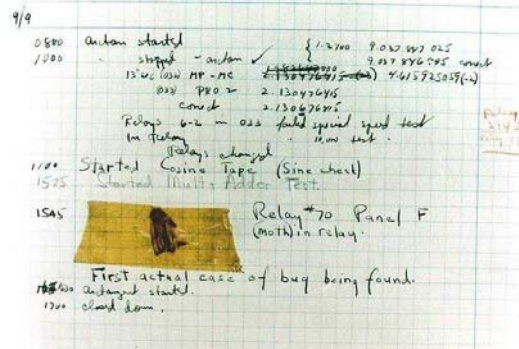 9/9
0800 antan started { 1.2700 9.037 847 025
1000 " stopped - antan ✓ 9.037 846 995 correct
13" uc (032) MP - MC 2.130476415 4.615925059(-2)
(033) PRO 2 2.130476415
correct 2.130676415
Relays 6-2 in 033 failed special speed test
in relay " 10.000 test .
Relays changed
1100 Started Cosine Tape (Sine check)
1525 Started Mult + Adder Test.
1545 Relay #70 Panel F
(moth) in relay.
First actual case of bug being found.
antangent started.
1700 closed down.